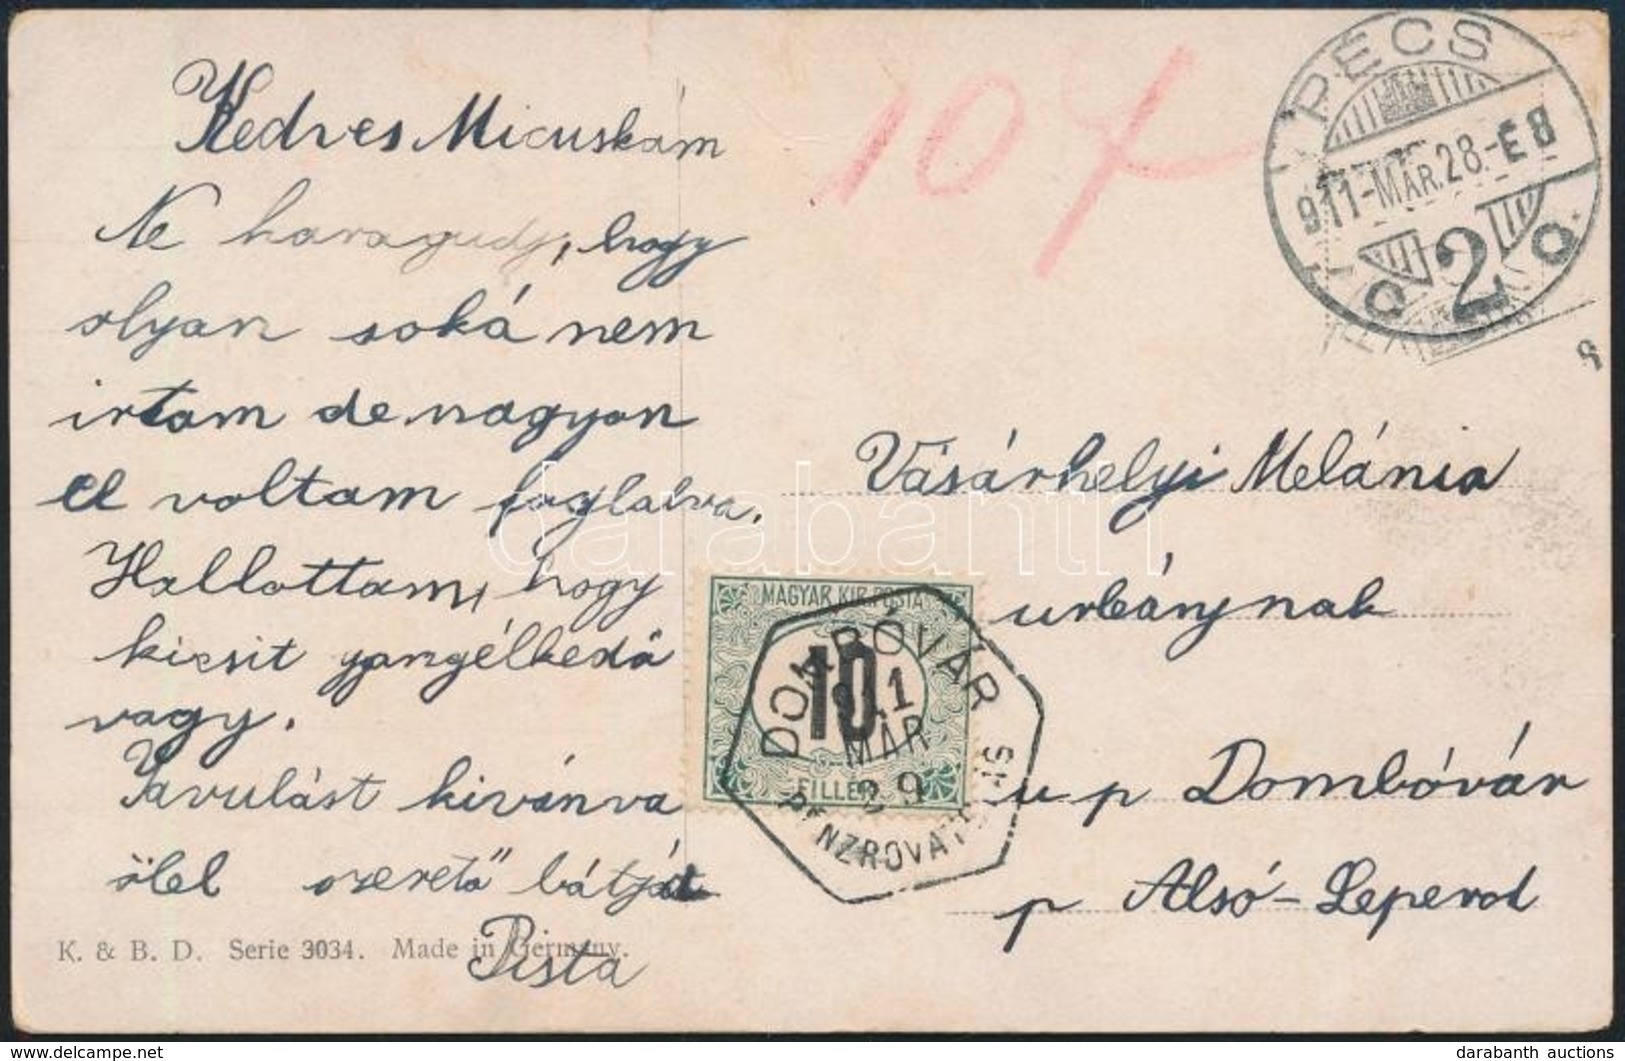 Kedves Micuskám
Ne haragudj, hogy
olyan soká nem
irtam de nagyon
el voltam foglalva.
Hallottam, hogy
kicsit gyengélkedő
vagy.
Javulást kivánva
ölel szerető bátyád
Pista
K. & B. D. Serie 3034. Made in Germany.
10 f
PÉCS
911-MÁR.28.-É8
2
Vásárhelyi Melánia
urleánynak
u p Dombóvár
p Alsó-Leperd
MAGYAR KIR. POSTA
10
FILLÉR
DOMBÓVÁR
911
MÁR
29
PÉNZROVATOLÁS
darabanth
delcampe.net
darabanth auctions